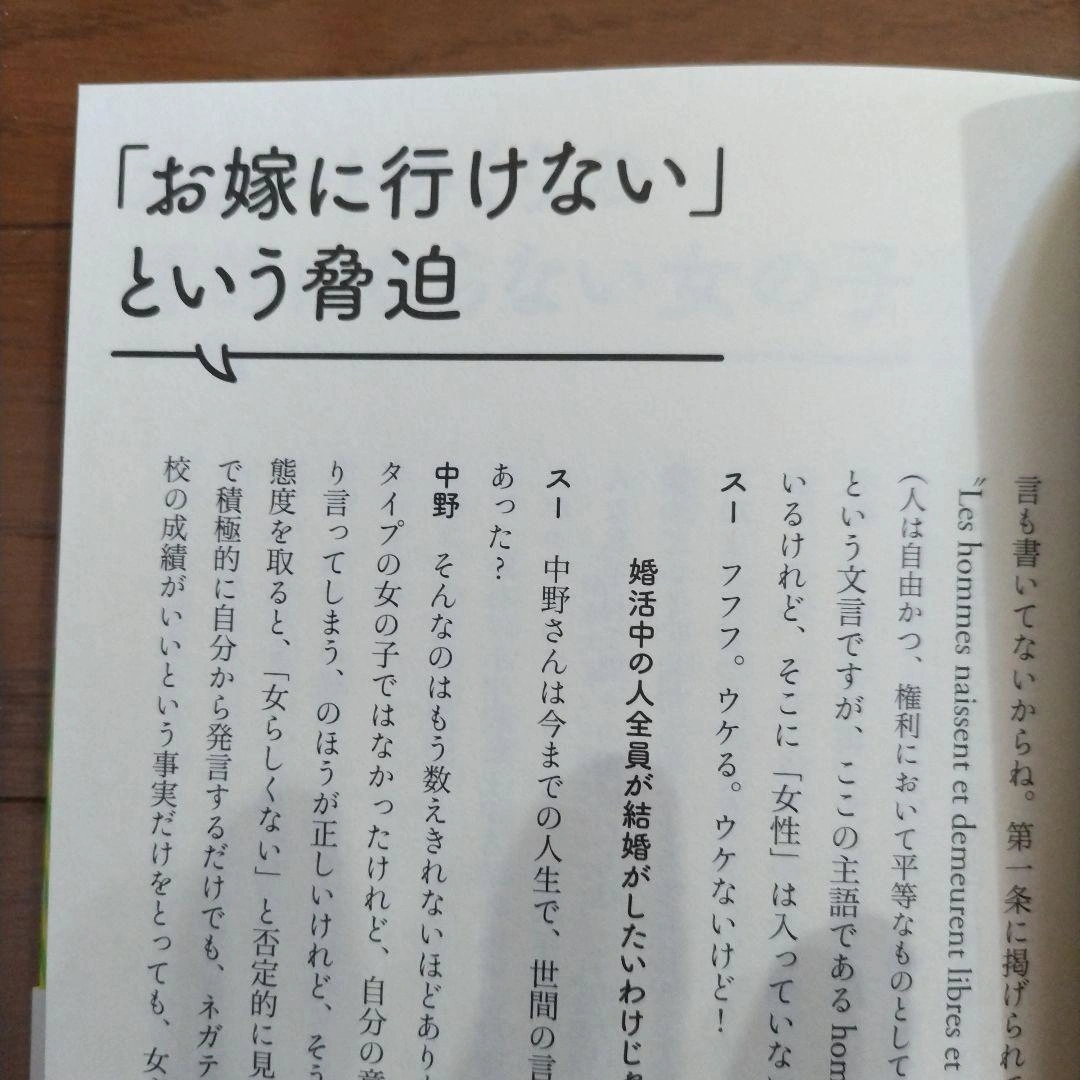 「お嫁に行けない」
という脅迫
言も書いてないからね。第一条に掲げられ
"Les hommes naissent et demeurent libres et
(人は自由かつ、権利において平等なものとして
という文言ですが、ここの主語である hom
いるけれど、そこに「女性」は入っていな
スー フフフ。ウケる。ウケないけど！
婚活中の人全員が結婚がしたいわけじ
スー 中野さんは今までの人生で、世間の言
あった？
中野 そんなのはもう数えきれないほどあり
タイプの女の子ではなかったけれど、自分の意
り言ってしまう、のほうが正しいけれど、そう
態度を取ると、「女らしくない」と否定的に見
で積極的に自分から発言するだけでも、ネガテ
校の成績がいいという事実だけをとっても、女